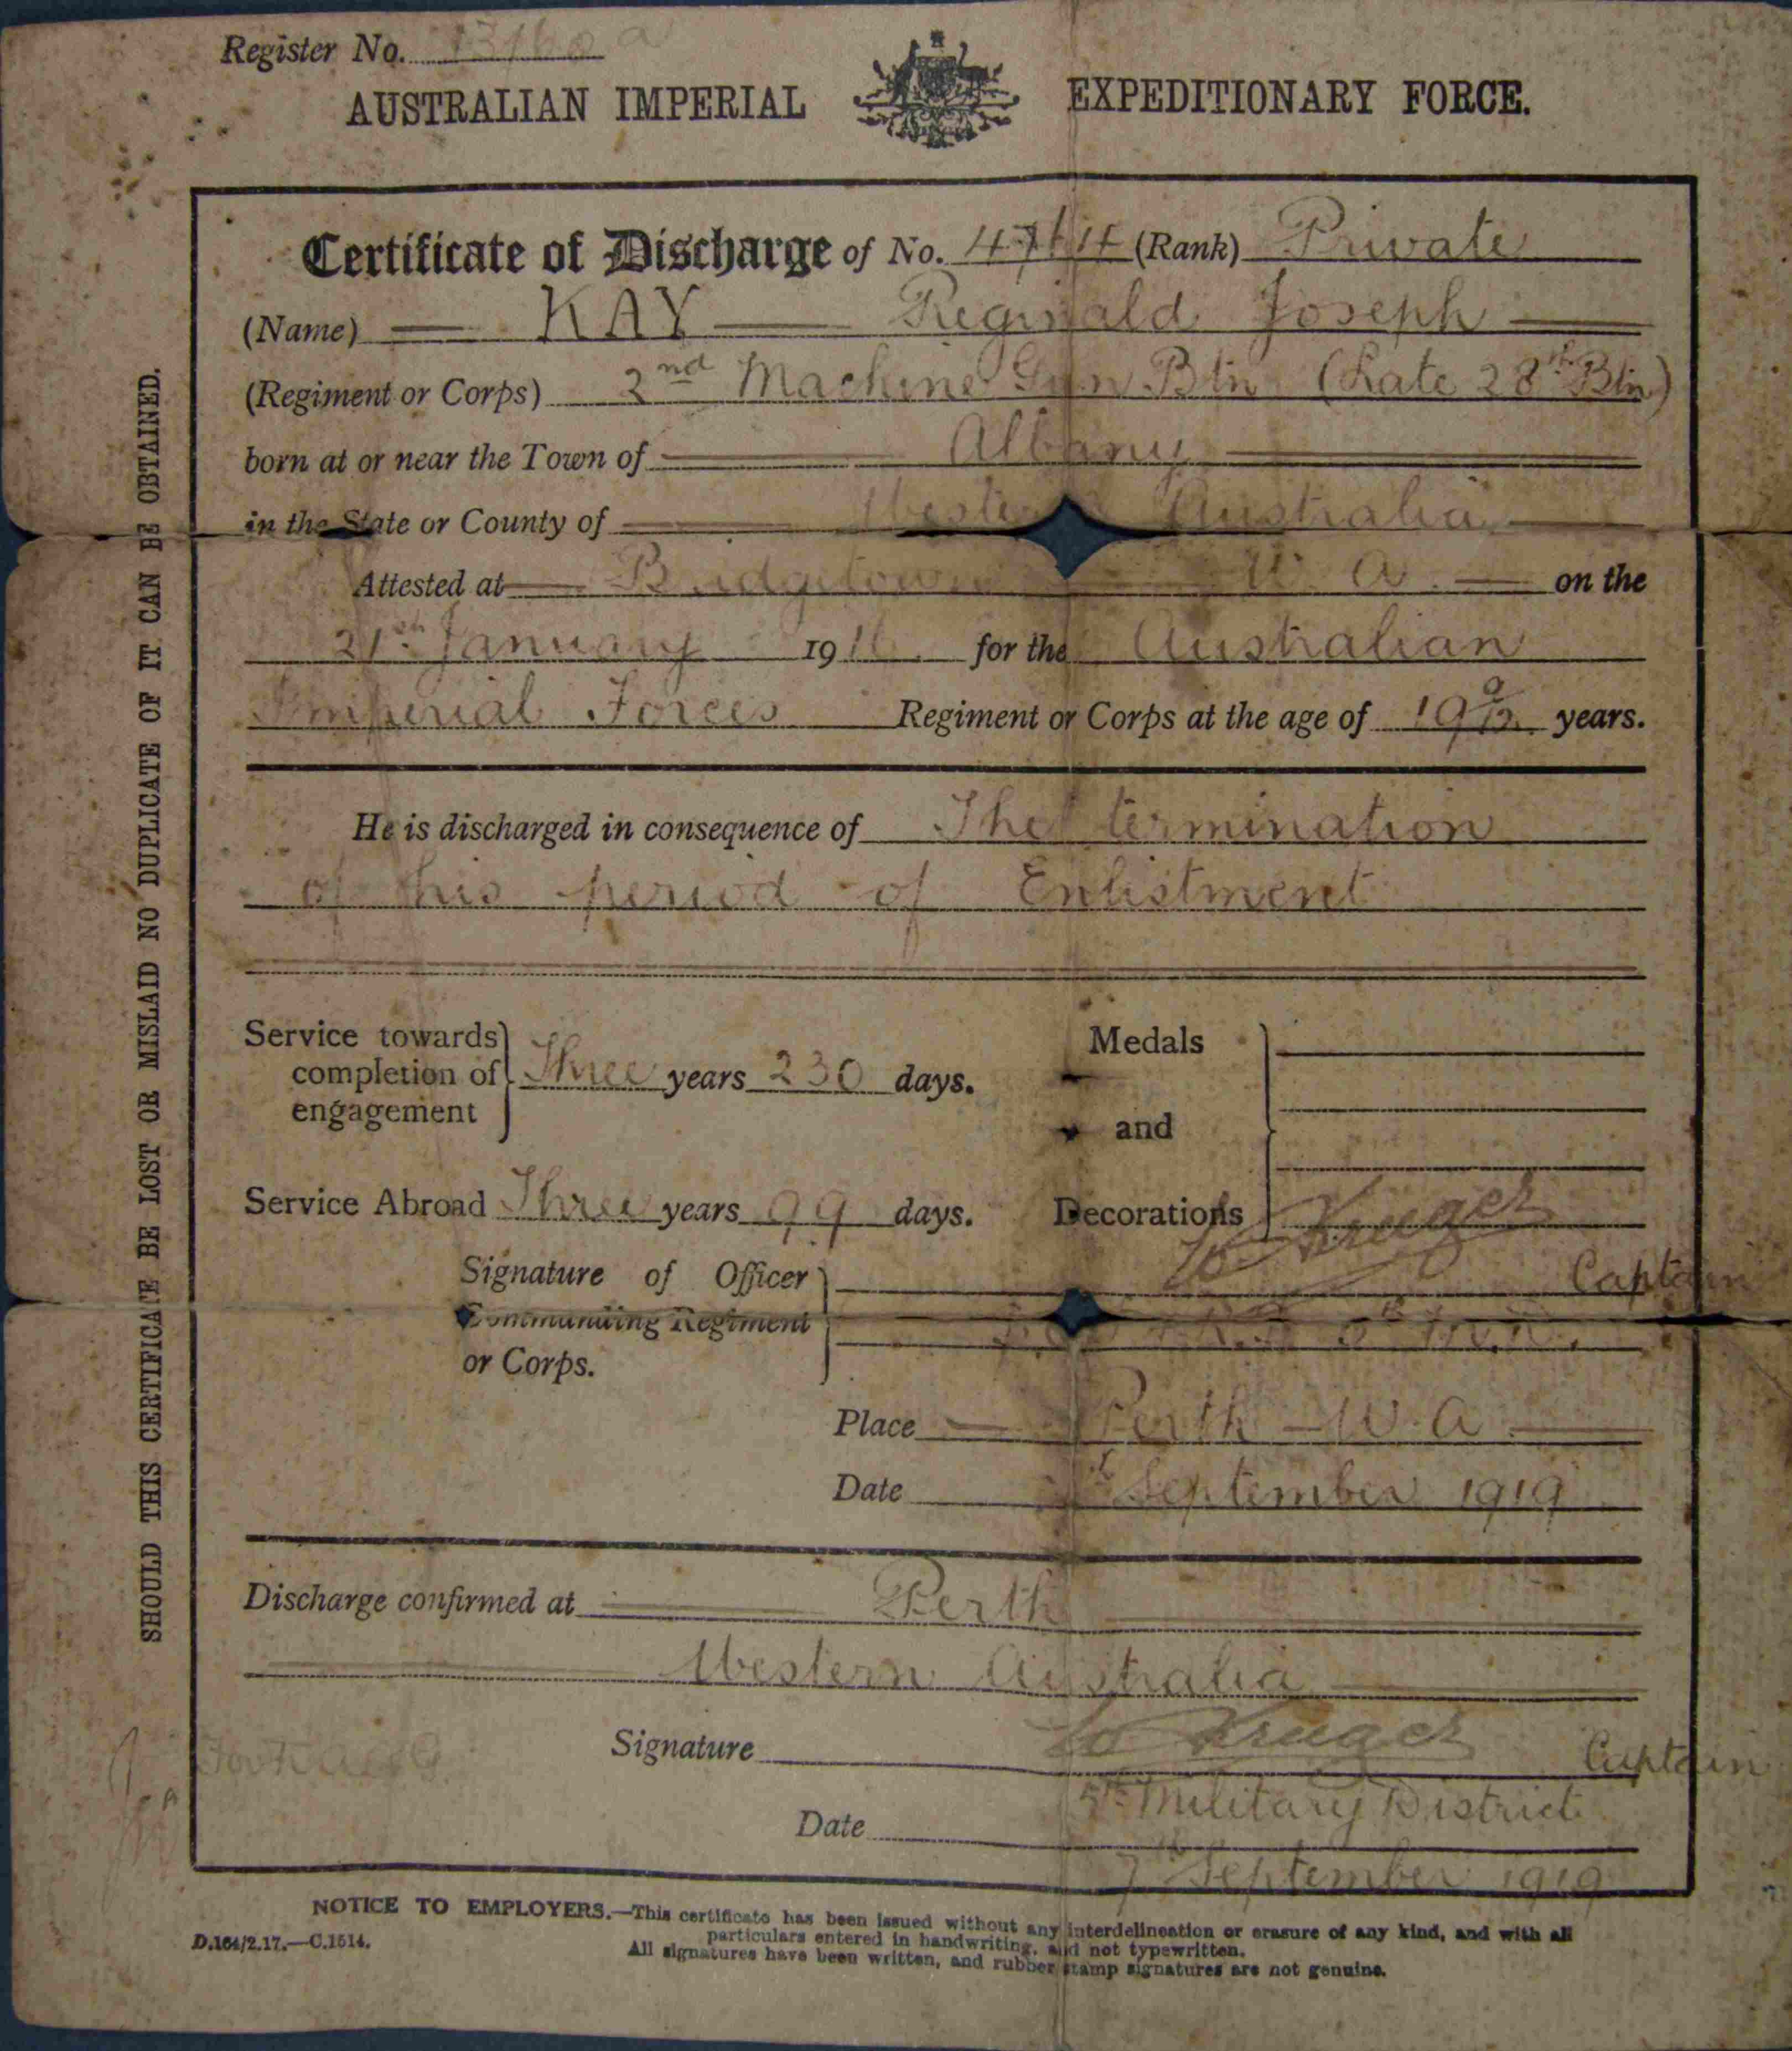 Register No.
AUSTRALIAN IMPERIAL EXPEDITIONARY FORCE.
Certificate of Discharge of No. (Rank) Private
(Name) KAY Reginald Joseph
(Regiment or Corps) 2nd Machine Gun Btn (Late 28th Btn)
born at or near the Town of Albany
in the State or County of Western Australia
Attested at Bridgetown W. A. on the
21st January 1916 for the Australian
Imperial Forces Regiment or Corps at the age of 19 9/12 years.
He is discharged in consequence of The termination
of his period of Enlistment
Service towards completion of engagement Three years 230 days.
Medals and Decorations
Service Abroad Three years 99 days.
Signature of Officer Commanding Regiment or Corps. Kruger Captain
Place Perth - W. A.
Date September 1919
Discharge confirmed at Perth
Western Australia
Signature Kruger Captain
5th Military District
Date 7th September 1919
NOTICE TO EMPLOYERS.—This certificate has been issued without any interdelineation or erasure of any kind, and with all
particulars entered in handwriting, and not typewritten.
All signatures have been written, and rubber stamp signatures are not genuine.
D.164/2.17.—C.1514.
SHOULD THIS CERTIFICATE BE LOST OR MISLAID NO DUPLICATE OF IT CAN BE OBTAINED.